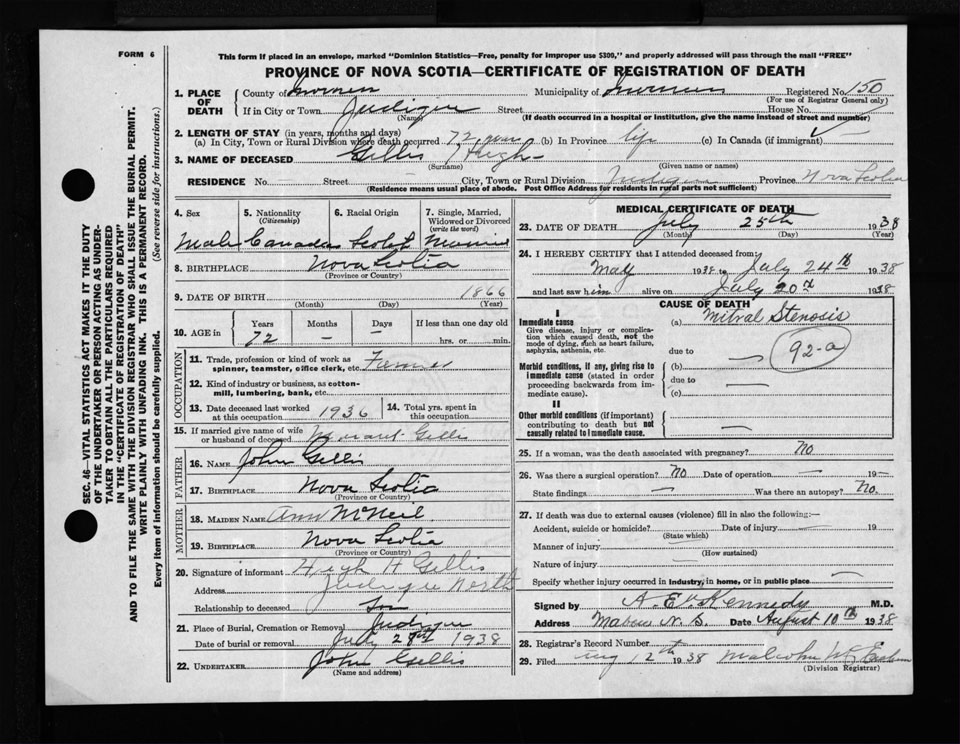 FORM 6
This form if placed in an envelope, marked "Dominion Statistics—Free, penalty for improper use $300," and properly addressed will pass through the mail "FREE"
PROVINCE OF NOVA SCOTIA—CERTIFICATE OF REGISTRATION OF DEATH
SEC. 46—VITAL STATISTICS ACT MAKES IT THE DUTY
OF THE UNDERTAKER OR PERSON ACTING AS UNDER-
TAKER TO OBTAIN ALL THE PARTICULARS REQUIRED
IN THE "CERTIFICATE OF REGISTRATION OF DEATH"
AND TO FILE THE SAME WITH THE DIVISION REGISTRAR WHO SHALL ISSUE THE BURIAL PERMIT.
WRITE PLAINLY WITH UNFADING INK. THIS IS A PERMANENT RECORD.
Every item of information should be carefully supplied. (See reverse side for instructions.)
1. PLACE OF DEATH
County of Inverness Municipality of Inverness Registered No. 150
(For use of Registrar General only)
If in City or Town Judique Street House No.
(Name) (If death occurred in a hospital or institution, give the name instead of street and number)
2. LENGTH OF STAY (in years, months and days)
(a) In City, Town or Rural Division where death occurred 72 years (b) In Province life (c) In Canada (if immigrant)
3. NAME OF DECEASED Gillis Hugh
(Surname) (Given name or names)
RESIDENCE No. Street City, Town or Rural Division Judique Province Nova Scotia
(Residence means usual place of abode. Post Office Address for residents in rural parts not sufficient)
4. Sex 5. Nationality (Citizenship) 6. Racial Origin 7. Single, Married, Widowed or Divorced (write the word)
Male Canadian Scotch Married
8. BIRTHPLACE Nova Scotia
(Province or Country)
9. DATE OF BIRTH 1866
(Month) (Day) (Year)
10. AGE in Years Months Days If less than one day old
72 – – hrs. or min.
OCCUPATION
11. Trade, profession or kind of work as spinner, teamster, office clerk, etc. Farmer
12. Kind of industry or business, as cotton-mill, lumbering, bank, etc.
13. Date deceased last worked at this occupation 1936 14. Total yrs. spent in this occupation
15. If married give name of wife or husband of deceased Gillis
FATHER
16. Name John Gillis
17. Birthplace Nova Scotia
(Province or Country)
MOTHER
18. Maiden Name Ann McNeil
19. Birthplace Nova Scotia
(Province or Country)
20. Signature of informant Hugh H Gillis
Address Judique North
Relationship to deceased Son
21. Place of Burial, Cremation or Removal Judique
Date of burial or removal July 1938
22. UNDERTAKER John Gillis
(Name and address)
MEDICAL CERTIFICATE OF DEATH
23. DATE OF DEATH July 25th 1938
(Month) (Day) (Year)
24. I HEREBY CERTIFY that I attended deceased from:
May 1938 to July 24th 1938
and last saw him alive on July 20th 1938
CAUSE OF DEATH
I
Immediate cause (a) Mitral Stenosis
Give disease, injury or complication which caused death, not the mode of dying, such as heart failure, asphyxia, asthenia, etc.
due to — 92-a
Morbid conditions, if any, giving rise to immediate cause (stated in order proceeding backwards from immediate cause).
(b)
due to —
(c)
II
Other morbid conditions (if important) contributing to death but not causally related to immediate cause.
25. If a woman, was the death associated with pregnancy? No
26. Was there a surgical operation? No Date of operation — 19—
State findings — Was there an autopsy? No.
27. If death was due to external causes (violence) fill in also the following:—
Accident, suicide or homicide? Date of injury — 19
(State which)
Manner of injury
(How sustained)
Nature of injury
Specify whether injury occurred in industry, in home, or in public place —
Signed by Kennedy M.D.
Address Mabou N. S. Date August 10th 1938
28. Registrar's Record Number
29. Filed Aug 12th 1938 Malcolm
(Division Registrar)